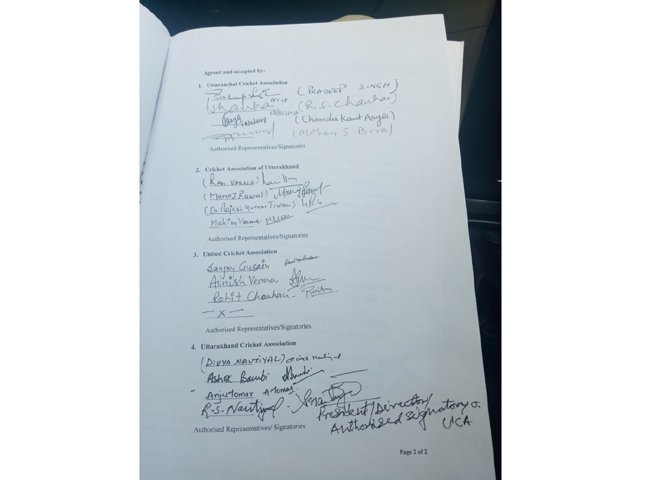 Agreed and accepted by:
1. Uttaranchal Cricket Association
(PRADEEP SINGH)
(R.S. Chauhan)
(Chandra Kant Arya)
(Mohan S. Bora)
Authorised Representatives/Signatories
2. Cricket Association of Uttarakhand
(RAM VARMA)
(Manoj Rawat) Manoj Rawat
(Dr. Rajesh Kumar Tiwari)
Mahim Verma
Authorised Representatives/Signatories
3. United Cricket Association
Sanjay Gusain
Avnish Verma
Rohit Chauhan
— x —
Authorised Representatives/Signatories
4. Uttarakhand Cricket Association
(DIVYA NAUTIYAL)
Ashok Bambi
Anju Tomar A Tomar
R.S. Nautiyal
President/Director/
Authorised signatory
UCA
Authorised Representatives/ Signatories
Page 2 of 2